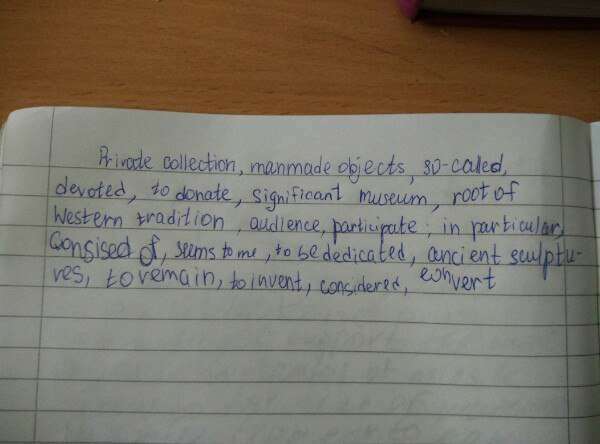 Private collection, manmade objects, so-called,
devoted, to donate, significant museum, root of
Western tradition, audience, participate; in particular,
Consised of, seems to me, to be dedicated, ancient sculptu-
res, to remain, to invent, considered, convert